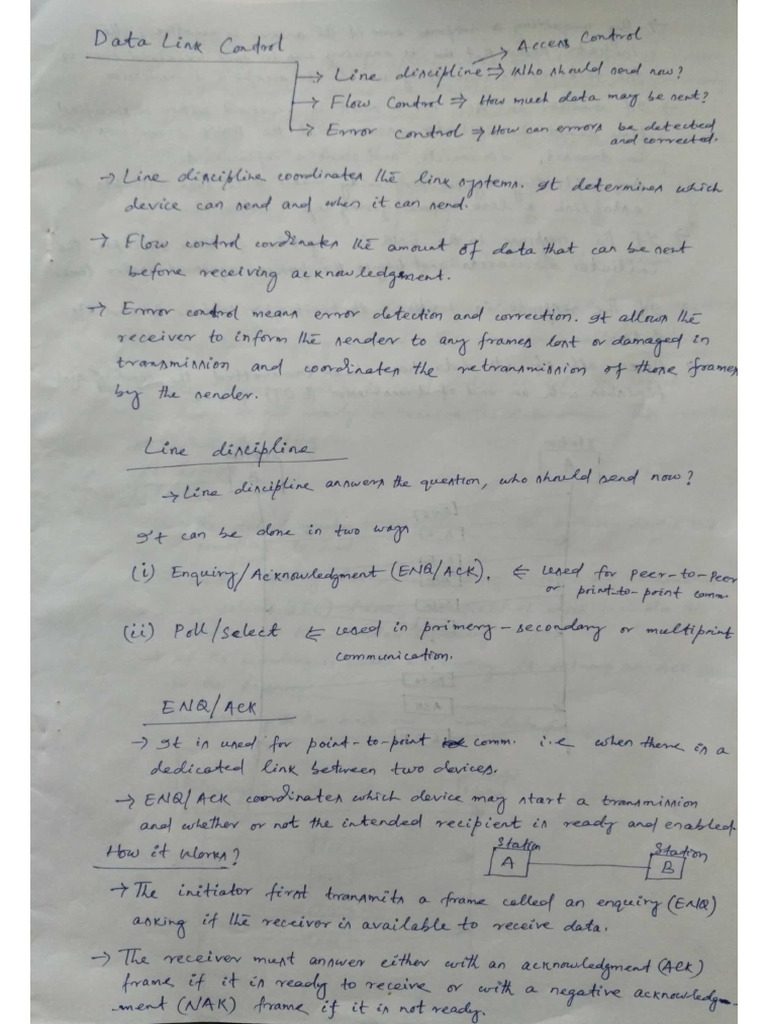 Data Link Control
Access Control
→ Line discipline ⇒ Who should send now?
→ Flow Control ⇒ How much data may be sent?
→ Error control ⇒ How can errors be detected
and corrected.
→ Line discipline coordinates the link systems. It determines which
device can send and when it can send.
→ Flow control coordinates the amount of data that can be sent
before receiving acknowledgment.
→ Error control means error detection and correction. It allows the
receiver to inform the sender to any frames lost or damaged in
transmission and coordinates the retransmission of those frames
by the sender.
Line discipline
→ Line discipline answers the question, who should send now?
It can be done in two ways
(i) Enquiry/Acknowledgment (ENQ/ACK). ⇐ used for peer-to-peer
or point-to-point comm.
(ii) Poll/select ⇐ used in primery-secondary or multipoint
communication.
ENQ/ACK
→ It is used for point-to-point comm. i.e when there is a
dedicated link between two devices.
→ ENQ/ACK coordinates which device may start a transmission
and whether or not the intended recipient is ready and enabled.
How it works?
Station
A
Station
B
→ The initiator first transmits a frame called an enquiry (ENQ)
asking if the receiver is available to receive data.
→ The receiver must answer either with an acknowledgment (ACK)
frame if it is ready to receive or with a negative acknowledg-
-ment (NAK) frame if it is not ready.